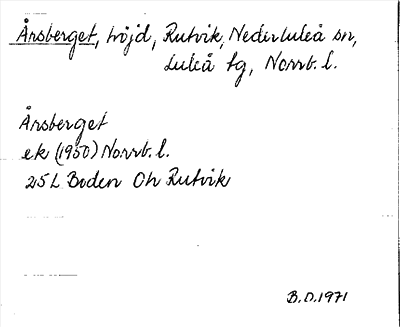 Årsberget, höjd, Rutvik, Nederluleå sn,
Luleå tg, Norrb. l.
Årsberget
ek (1950) Norrb. l.
25 L Boden Ch Rutvik
B.O.1971